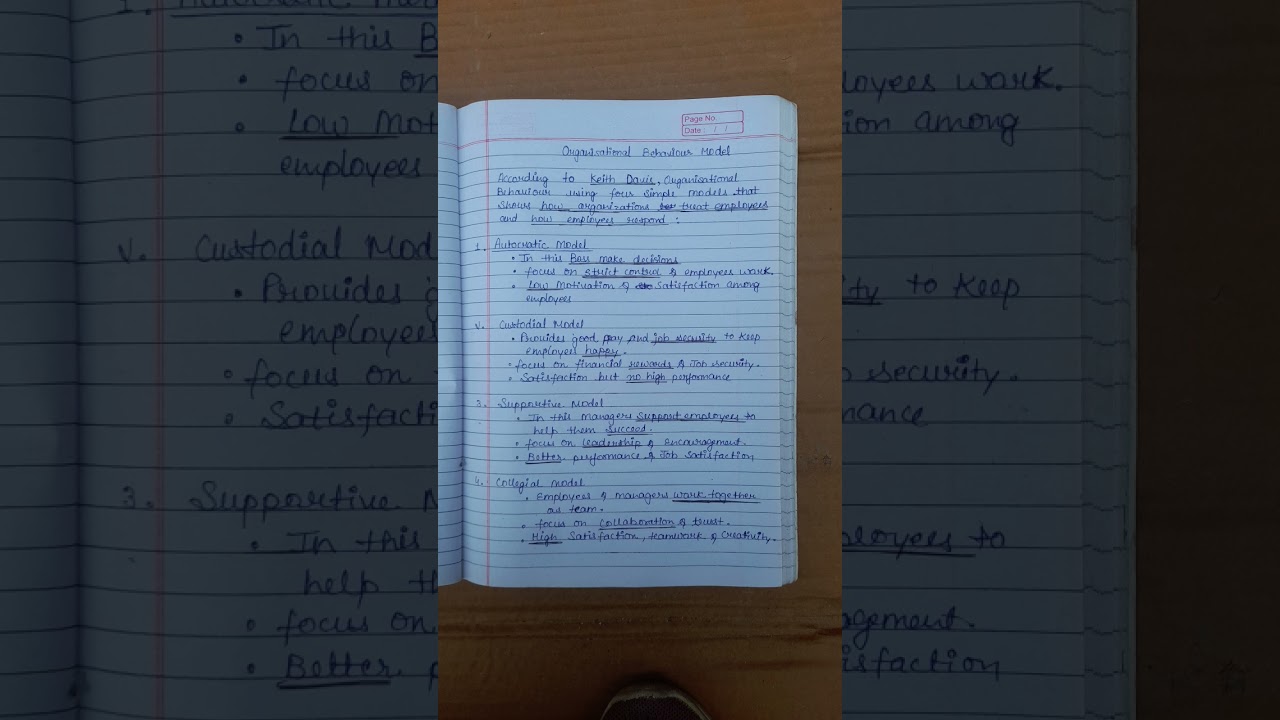 Page No.
Date: / /
Organisational Behaviour Model
According to Keith Davis, Organisational
Behaviour using four simple models that
shows how organizations treat employees
and how employees respond :
1. Autocratic Model
• In this Boss make decisions
• focus on strict control & employees work.
• Low Motivation & Satisfaction among
employees
v. Custodial Model
• Provides good pay and job security to keep
employees happy.
• focus on financial rewards & Job security.
• Satisfaction but no high performance
3. Supportive Model
• In this managers support employees to
help them succeed.
• focus on leadership & encouragement.
• Better performance & Job Satisfaction
4. Collegial Model
• Employees & managers work together
as team.
• focus on collaboration & trust.
• High Satisfaction, teamwork & Creativity.